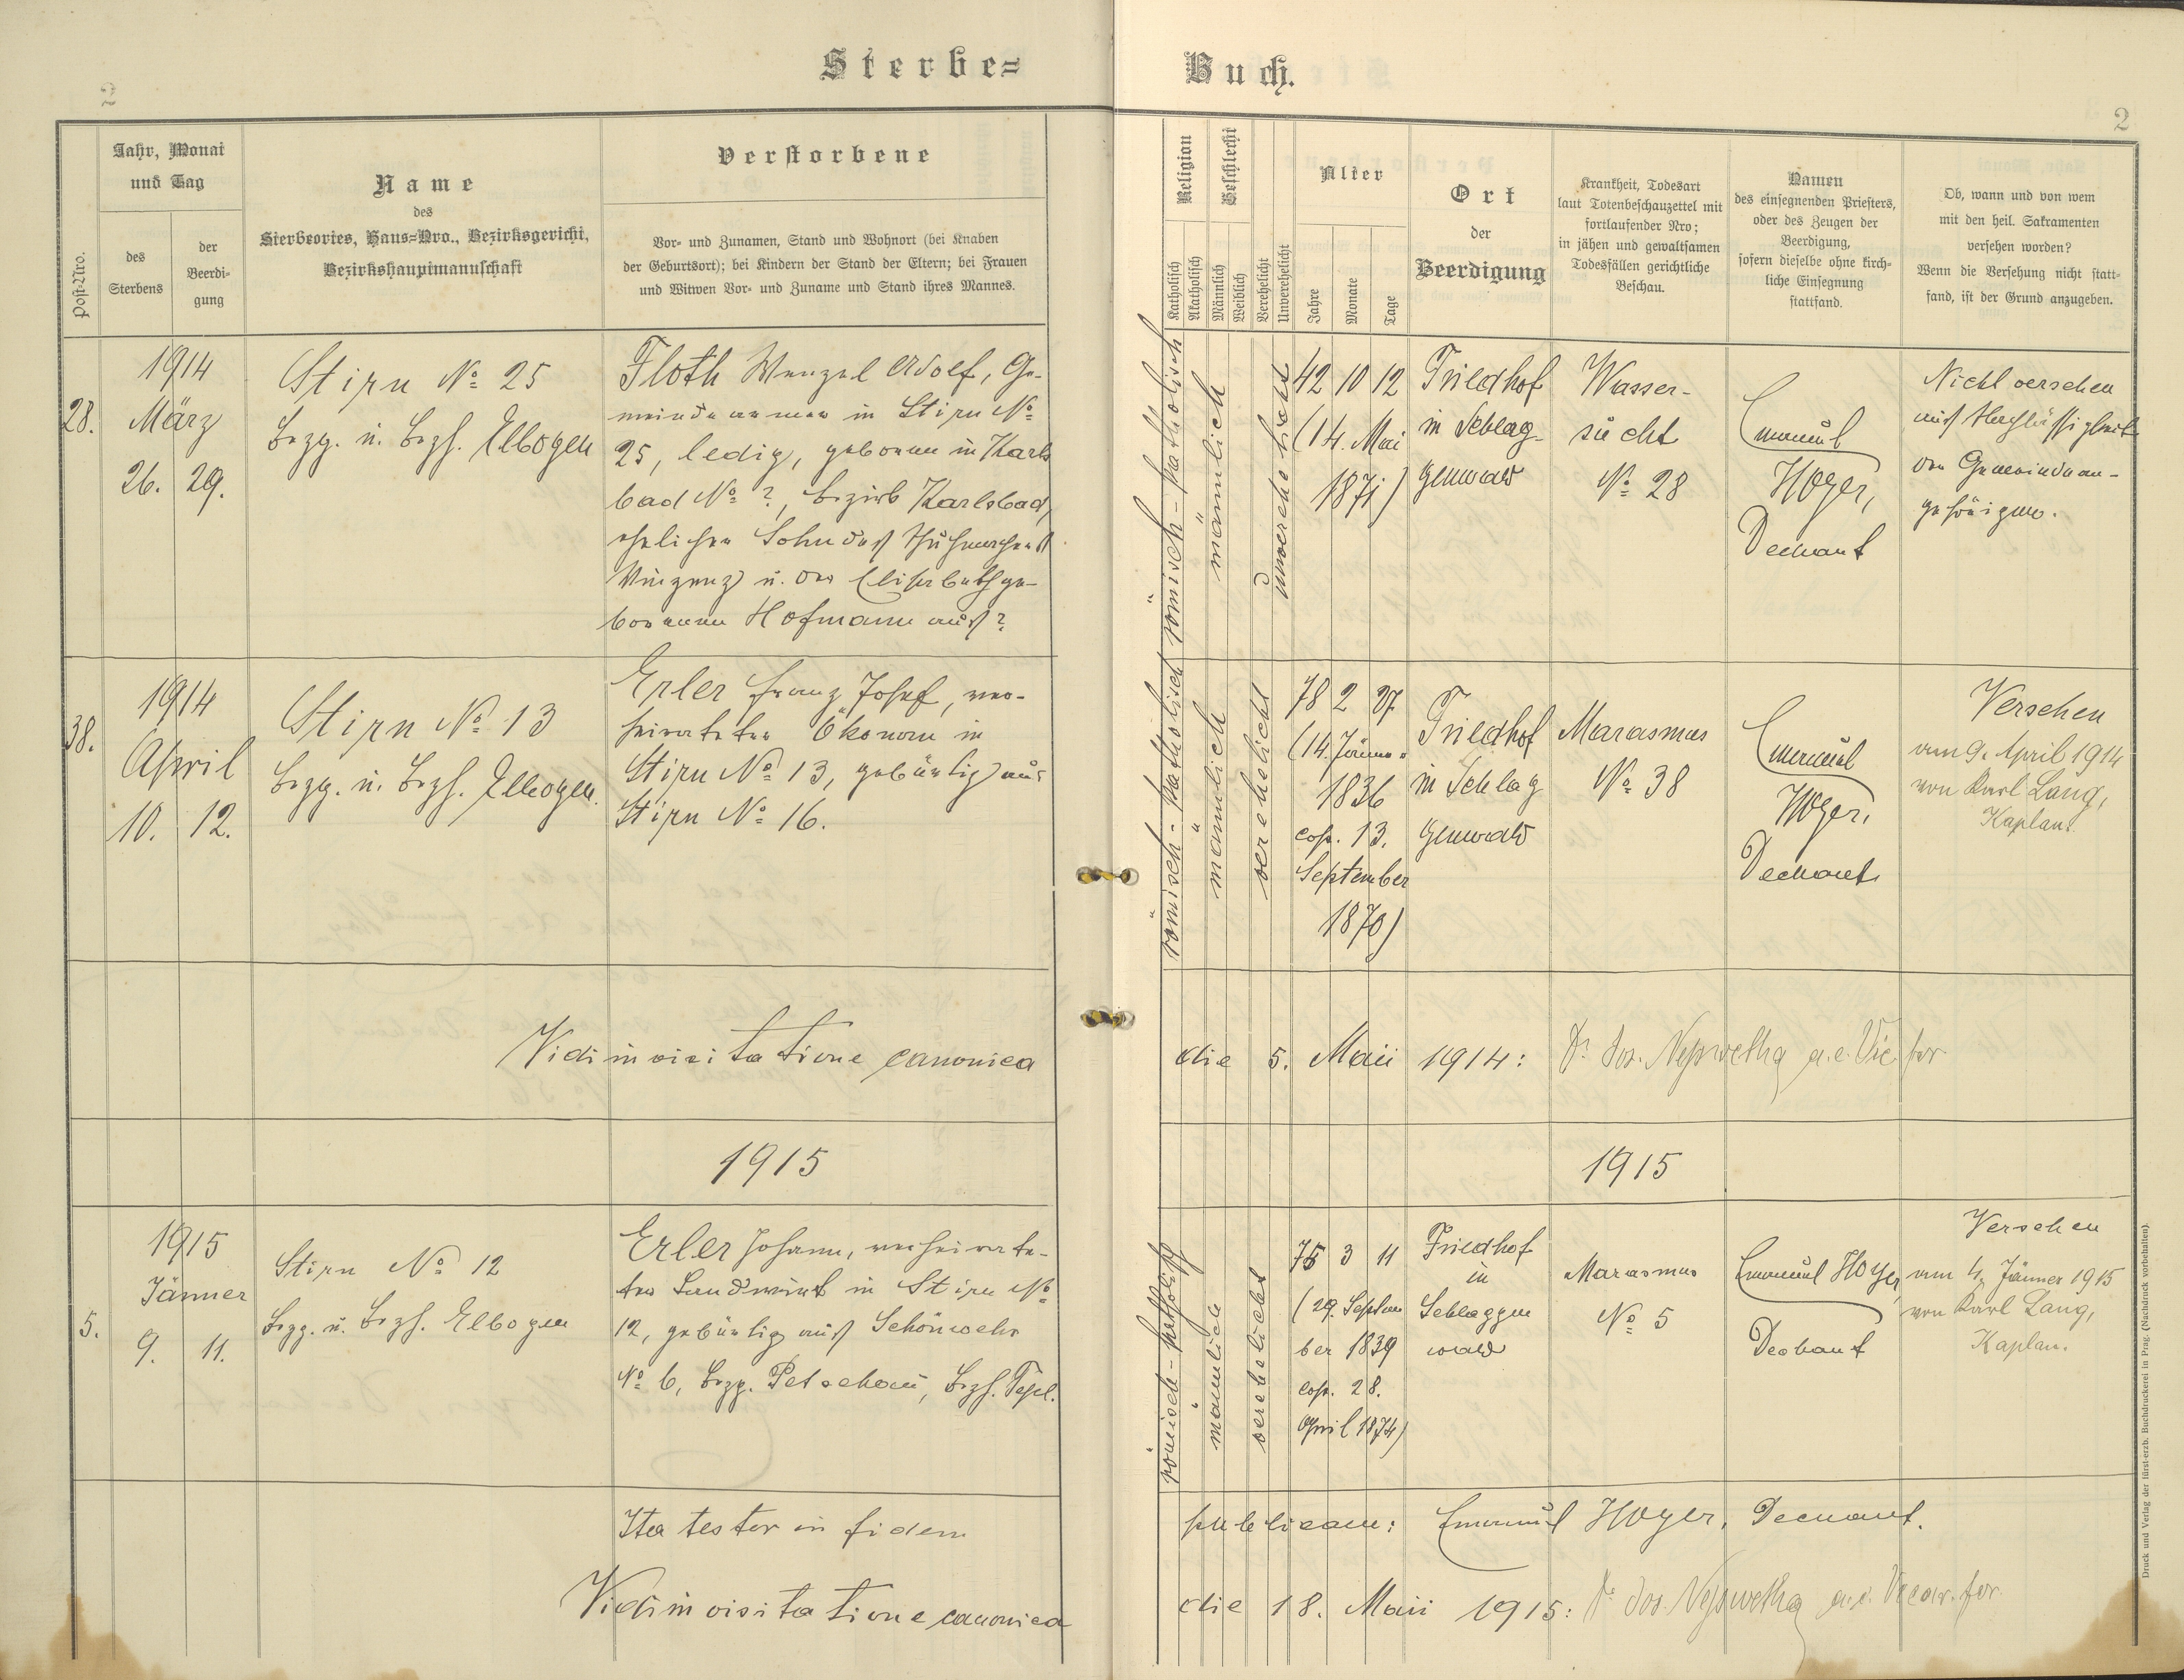 Sterbe= Buch.
2
2
Post-Nro.
Jahr, Monat
und Tag
des
Sterbens
der
Beerdi-
gung
Name
des
Sterbeortes, Haus=Nro., Bezirksgericht,
Bezirkshauptmannschaft
Verstorbene
Vor- und Zunamen, Stand und Wohnort (bei Knaben
der Geburtsort); bei Kindern der Stand der Eltern; bei Frauen
und Witwen Vor- und Zuname und Stand ihres Mannes.
Religion
Katholisch
Akatholisch
Geschlecht
Männlich
Weiblich
Verehelicht
Unverehelicht
Alter
Jahre
Monate
Tage
Ort
der
Beerdigung
Krankheit, Todesart
laut Totenbeschauzettel mit
fortlaufender Nro;
in jähen und gewaltsamen
Todesfällen gerichtliche
Beschau.
Namen
des einsegnenden Priesters,
oder des Zeugen der
Beerdigung,
sofern dieselbe ohne kirch-
liche Einsegnung
stattfand.
Ob, wann und von wem
mit den heil. Sakramenten
versehen worden?
Wenn die Versehung nicht statt-
fand, ist der Grund anzugeben.
28.
1914
März
26. 29.
Stirn No 25
Bzg. u. Bzh. Elbogen
Floth Wenzel Adolf, Ge-
meindearmer in Stirn No
25, ledig, geboren in Karls
bad No ?, Bezirk Karlsbad,
ehelicher Sohn des
Vinzenz u. der Elisabeth ge-
borenen Hofmann aus ?
römisch-katholisch
männlich
unverehelicht
42 10 12
(14. Mai
1871)
Friedhof
in Schlag-
genwald
Wasser-
sucht
No 28
Emanuel
Hoyer,
Dechant
Nicht versehen
aus Nachlässigkeit
der Gemeindean-
gehörigen.
38.
1914
April
10. 12.
Stirn No 13
Bzg. u. Bzh. Elbogen.
Erler Franz Josef, ver-
heirateter Ökonom in
Stirn No 13, gebürtig aus
Stirn No 16.
römisch-katholisch
männlich
verehelicht
78 2 27
(14. Jänner
1836
cop. 13.
September
1870)
Friedhof
in Schlag
genwald
Marasmus
No 38
Emanuel
Hoyer,
Dechant
Versehen
am 9. April 1914
von Karl Lang,
Kaplan.
Vidi in visitatione canonica die 5. Maii 1914: Dr. Jos. a.e. Vic. for
1915
1915
5.
1915
Jänner
9. 11.
Stirn No 12
Bzg. u. Bzh. Elbogen
Erler Johann, verheirate-
ter Landwirt in Stirn No
12, gebürtig aus Schönwehr
No 6, Bzg. Petschau, Bzh. Tepl.
römisch-katholisch
männlich
verehelicht
75 3 11
(29. Septem
ber 1839
cop. 28.
April 1874)
Friedhof
in
Schlaggen
wald
Marasmus
No 5
Emanuel Hoyer
Dechant
Versehen
am 4. Jänner 1915
von Karl Lang,
Kaplan.
Ita testor in fidem publicam: Emanuel Hoyer, Dechant.
Vidi in visitatione canonica die 18. Maii 1915: Dr. Jos. a.e. Vicar. for.
Druck und Verlag der fürst-erzb. Buchdruckerei in Prag. (Nachdruck vorbehalten).